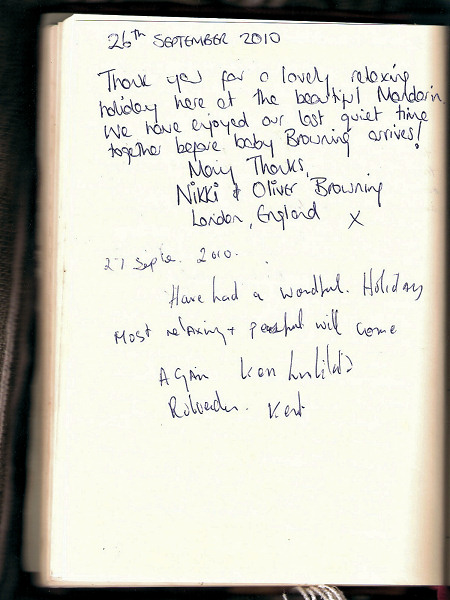 26th SEPTEMBER 2010
Thank you for a lovely relaxing
holiday here at the beautiful Mandarin.
We have enjoyed our last quiet time
together before baby Browning arrives!
Many Thanks,
Nikki & Oliver Browning
London, England X
27 Septe. 2010.
Have had a wondful. Holiday
Most relaxing + will come
Again Ken
Kent